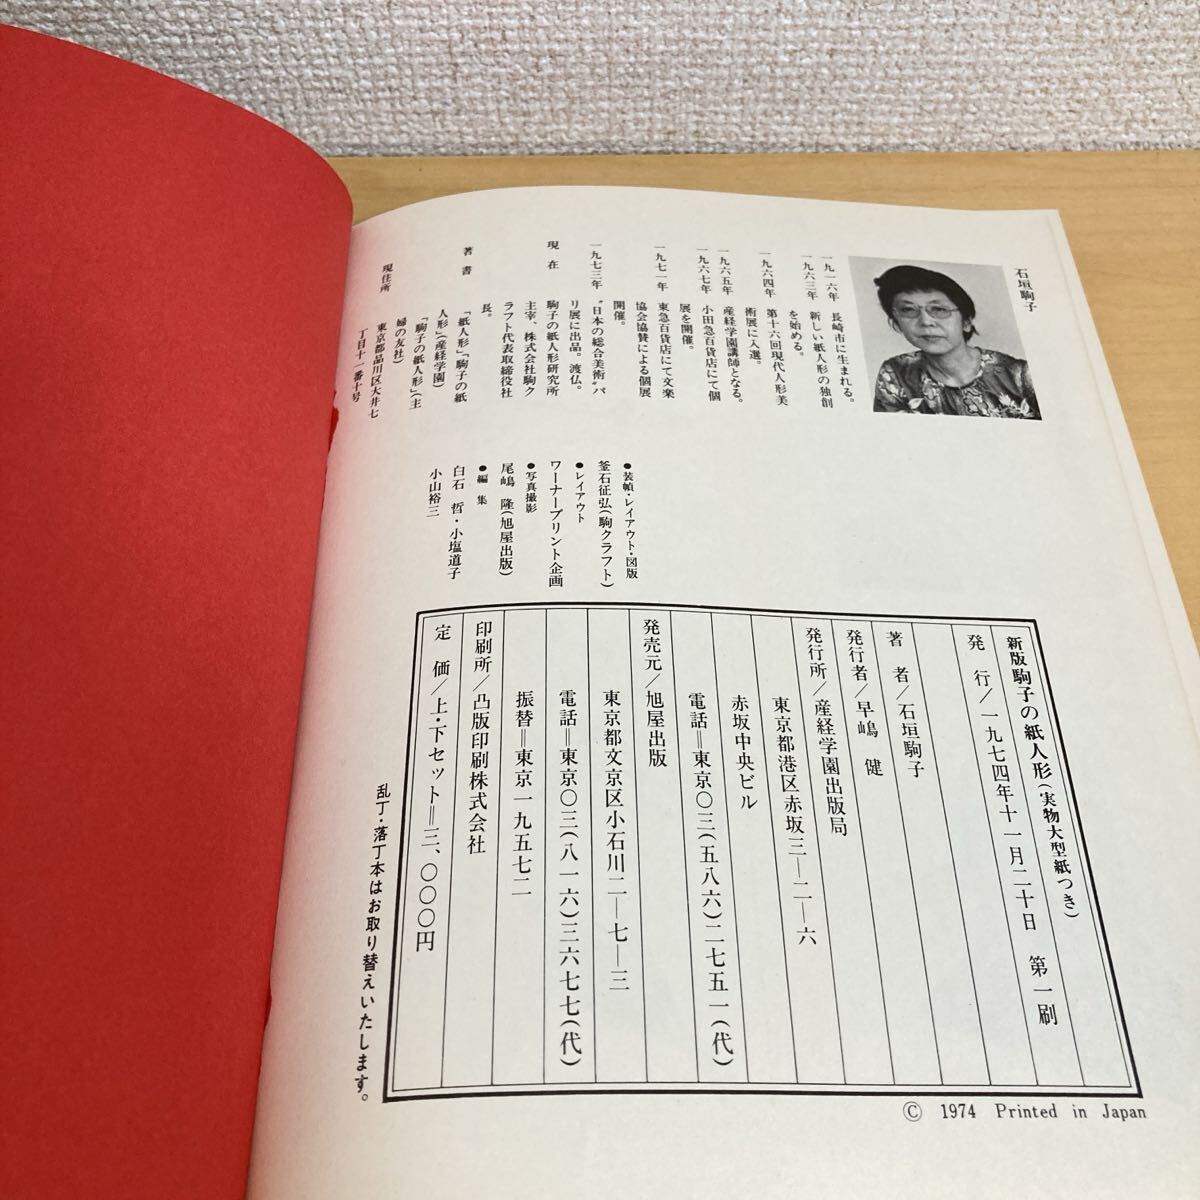 石垣駒子
一九一六年 長崎市に生まれる。
一九六三年 新しい紙人形の独創
を始める。
一九六四年 第十六回現代人形美
術展に入選。
一九六五年 産経学園講師となる。
一九六七年 小田急百貨店にて個
展を開催。
一九七一年 東急百貨店にて文楽
協会協賛による個展
開催。
一九七三年 “日本の総合美術”パ
リ展に出品。渡仏。
現在 駒子の紙人形研究所
主宰、株式会社駒ク
ラフト代表取締役社
長。
著書 「紙人形」「駒子の紙
人形」(産経学園)
「駒子の紙人形」(主
婦の友社)
現住所 東京都品川区大井七
丁目十一番十号
●装幀・レイアウト・図版
釜石征弘(駒クラフト)
●レイアウト
ワーナープリント企画
●写真撮影
尾嶋 隆(旭屋出版)
●編集
白石 哲・小塩道子
小山裕三
新版駒子の紙人形(実物大型紙つき)
発 行/一九七四年十一月二十日 第一刷
著 者/石垣駒子
発行者/早嶋 健
発行所/産経学園出版局
東京都港区赤坂三―二―六
赤坂中央ビル
電話＝東京〇三(五八六)二七五一(代)
発売元/旭屋出版
東京都文京区小石川二―七―三
電話＝東京〇三(八一六)三六七七(代)
振替＝東京一九五七二
印刷所/凸版印刷株式会社
定 価/上・下セット＝三、〇〇〇円
乱丁・落丁本はお取り替えいたします。
© 1974 Printed in Japan